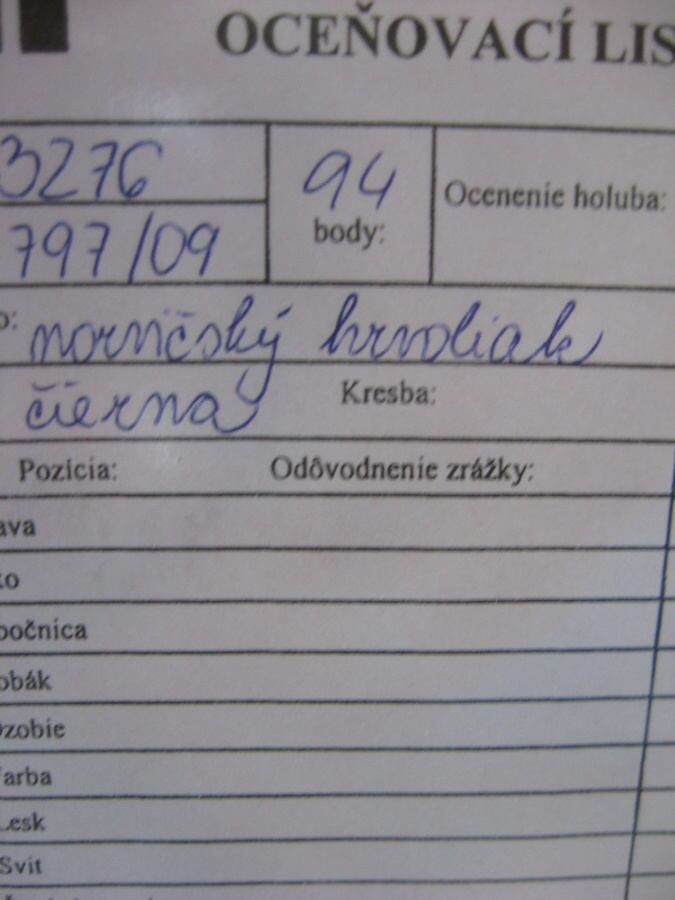 OCEŇOVACÍ LIS
3276
94
797/09
body:
Ocenenie holuba:
o: norničský hrvoliak
čierna Kresba:
Pozícia: Odôvodnenie zrážky:
ava
ko
počnica
obák
Ozobie
Farba
Lesk
Svit